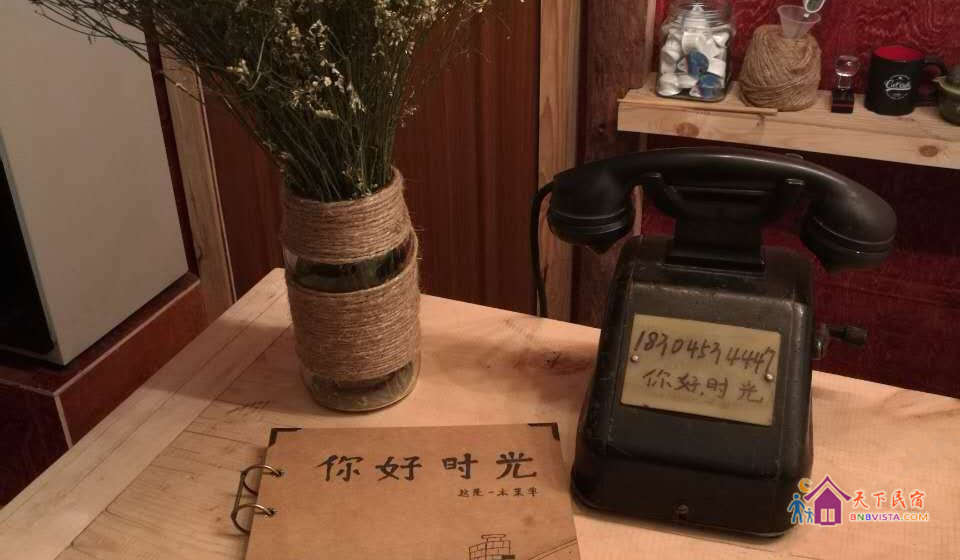 18704534447
你好.时光
你好时光
这是一本菜单
天下民宿
BNBVISTA.COM